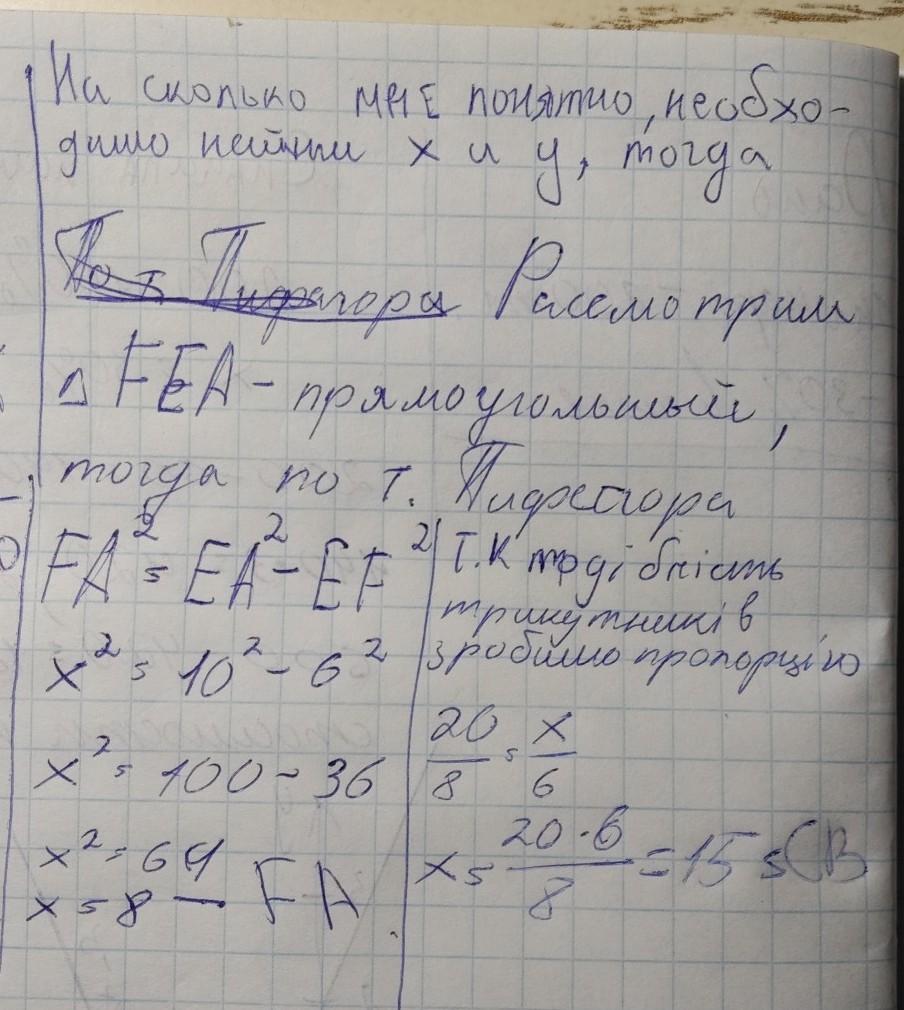 На сколько мне понятно, необхо-
димо найти х и у, тогда
По т Пифагора Рассмотрим
△ FEA - прямоугольный,
тогда по т. Пифагора
FA² = EA² - EF²
x² = 10² - 6²
x² = 100 - 36
x² = 64
x = 8 — FA
Т.К подібність
трикутників
зробимо пропорцію
20/8 = x/6
x = 20·6/8 = 15 = CB